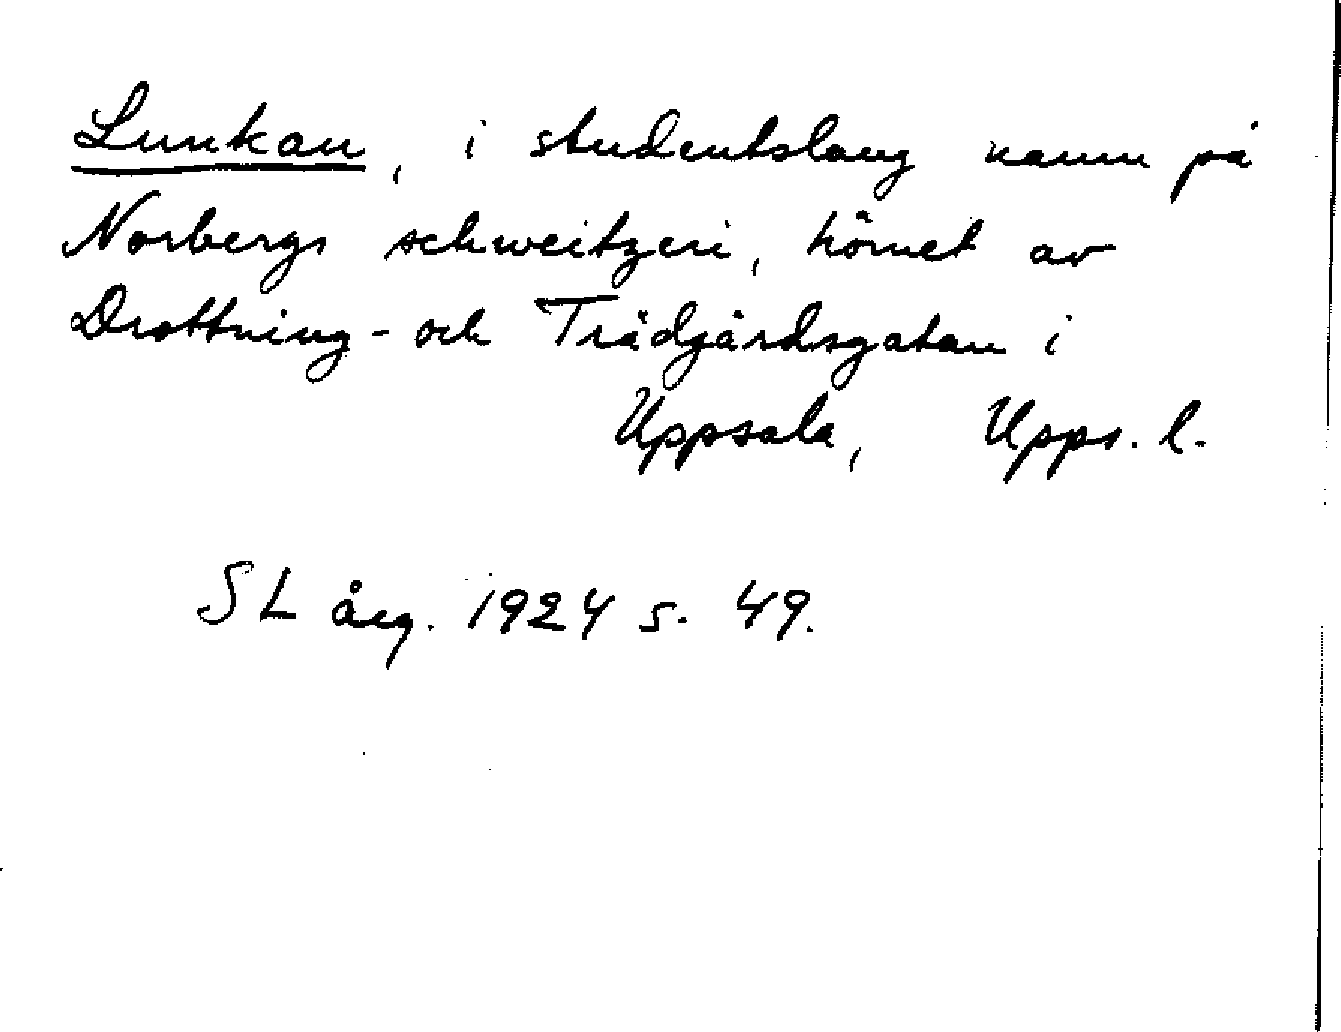 Lunkan, i studentslang namn på
Norbergs schweitzeri, hörnet av
Drottning- och Trädgårdsgatan i
Uppsala, Upps. l.
SL årg. 1924 s. 49.